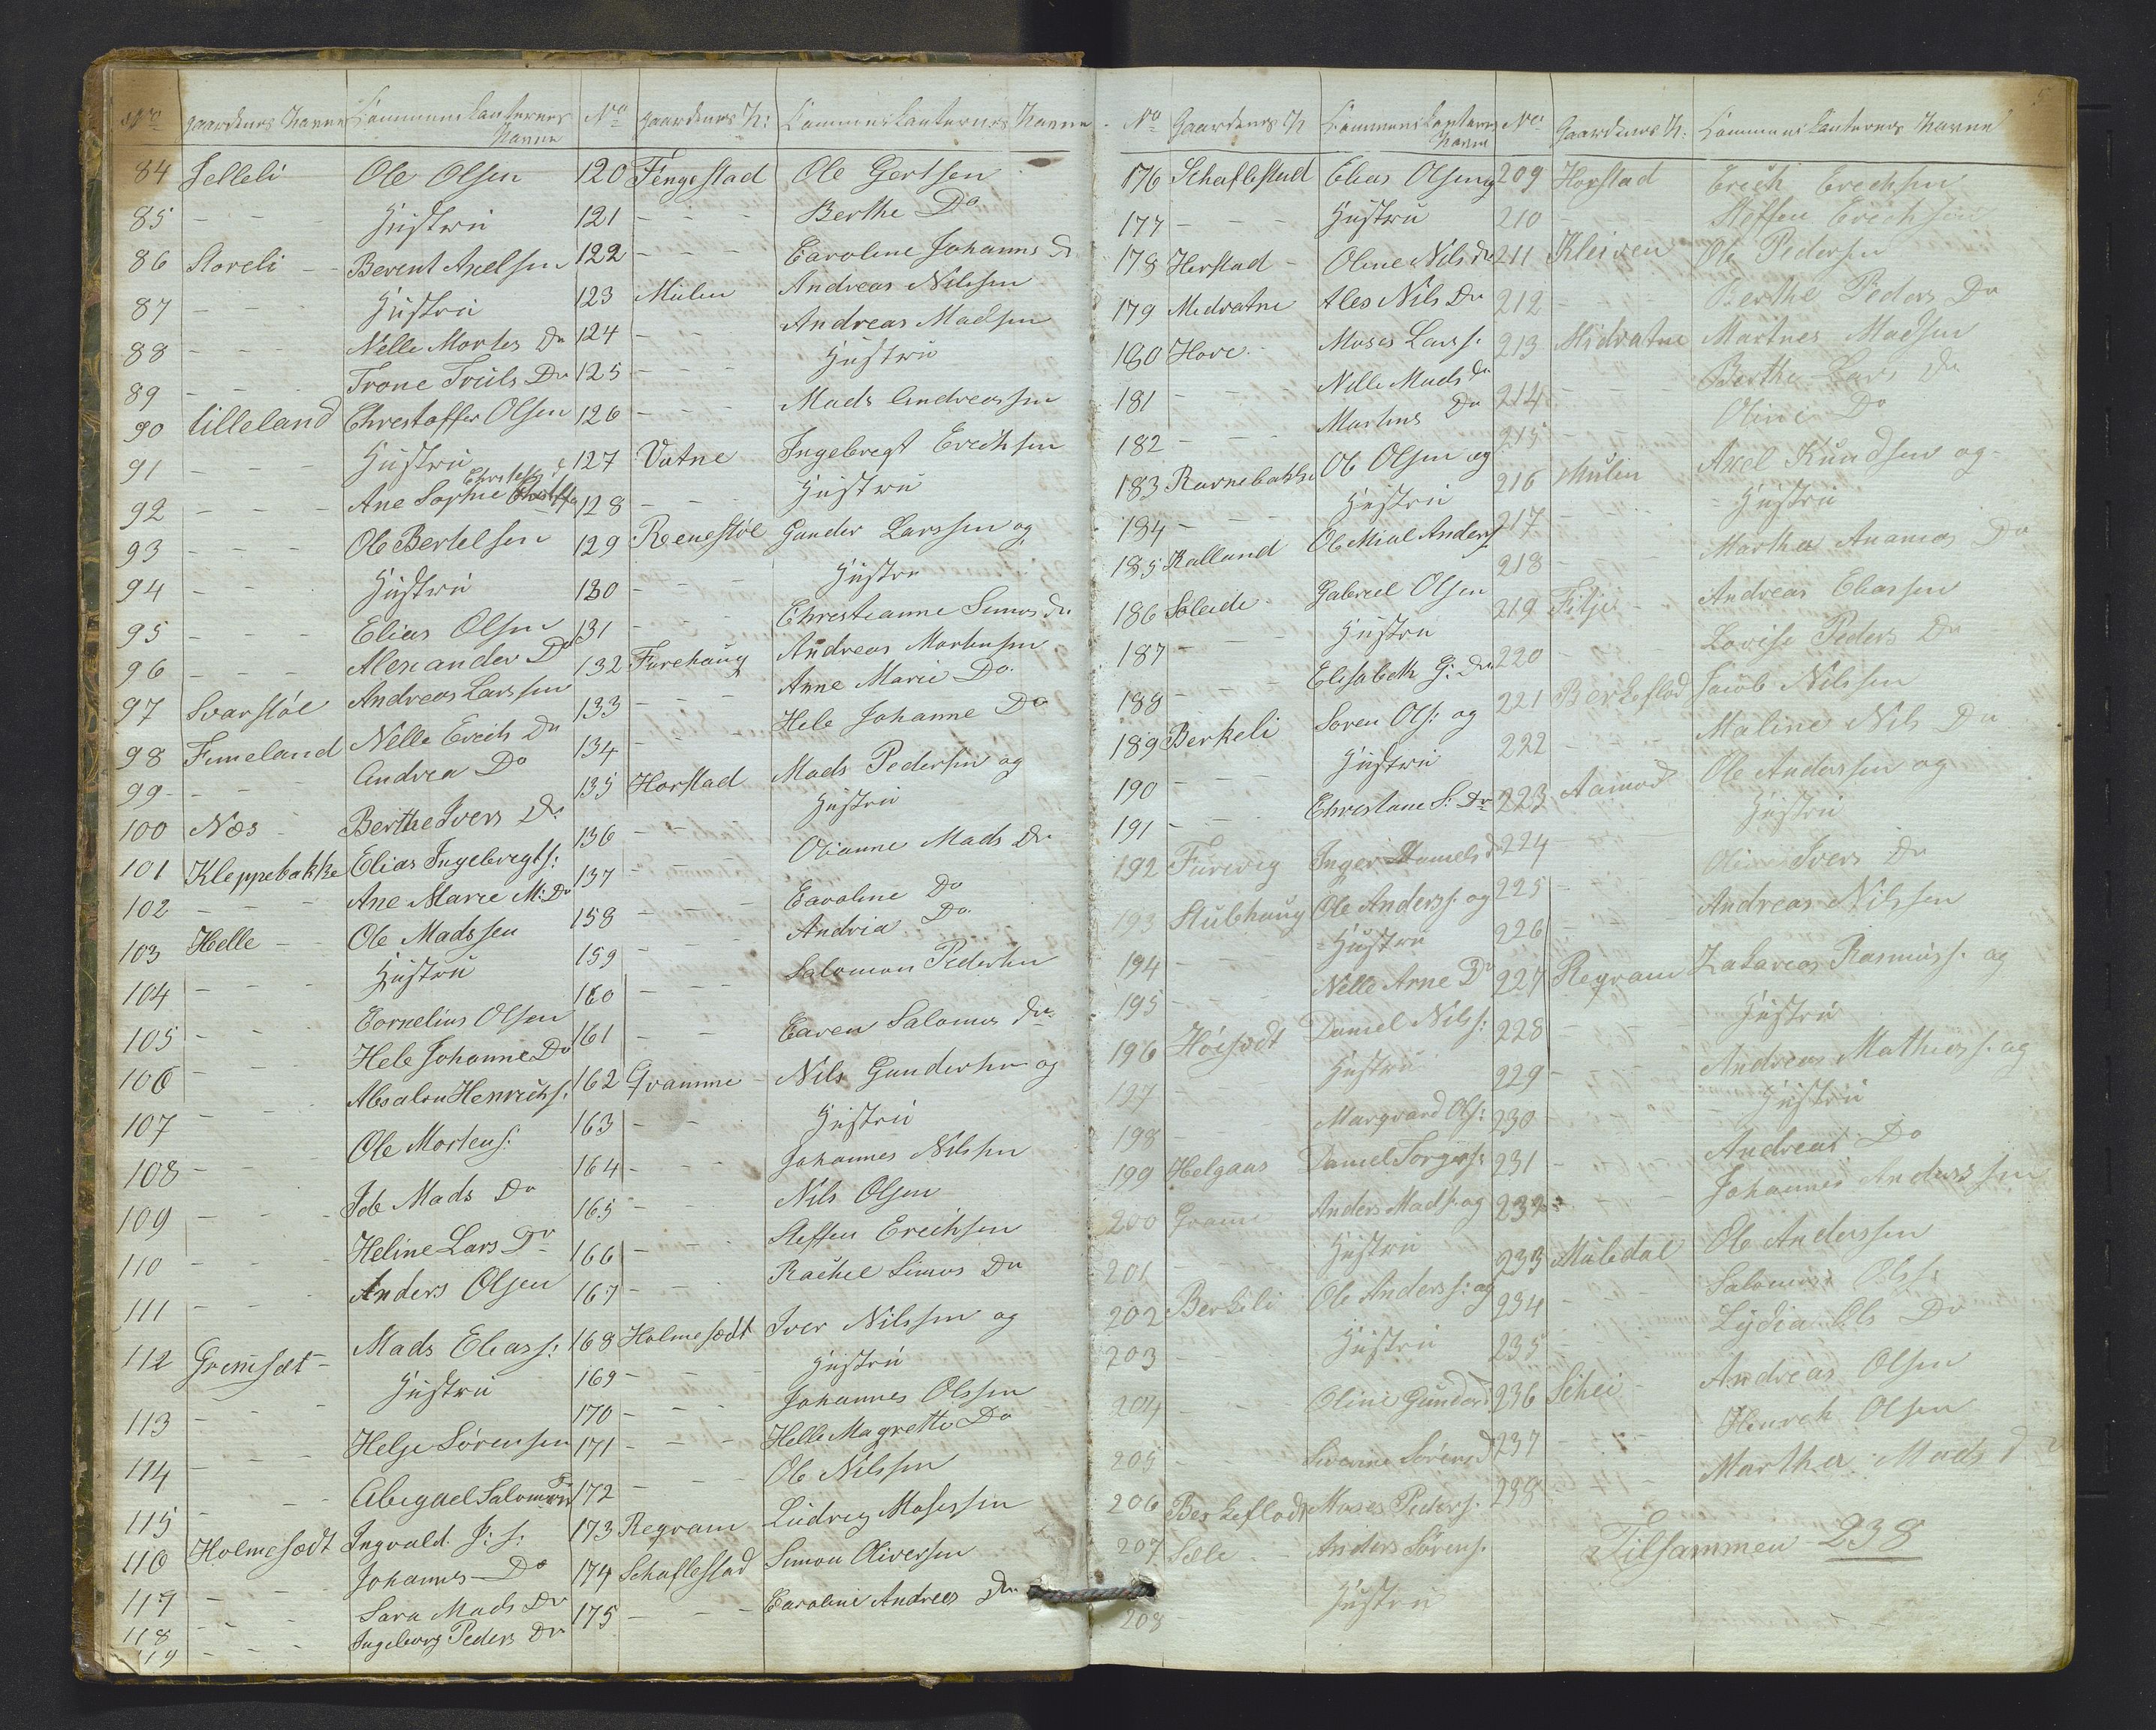 No Gaardenes Navne Communicanternes Navne
84 Jelleli Ole Olsen
85 - - - Hustru
86 Storeli - - Berent Axelsen
87 - - - Hustru
88 - - - Nelle Mortes Dr
89 - - - Trone Truls Dr
90 Lilleland Christoffer Olsen
91 - - - Hustru
92 - - - Ane Sophie Christoffs
93 - - - Ole Bertelsen
94 - - Hustru
95 - - - Elias Olsen
96 - - - Alexander Do
97 Svarstöl Andreas Larssen
98 Fimeland Nelle Erich Dr
99 - - - Andrea Do
100 Næs - Berthe Ivers Dr
101 Kleppebakke Elias Ingebregts:
102 - - - Ane Marie M: Dr
103 Helle - Ole Madssen
104 - - - Hustru
105 - - - Cornelius Olsen
106 - - - Hele Johanne Do
107 - - - Absalon Henrichs:
108 - - - Ole Mortens:
109 - - - Ide Mads Dr
110 - - - Heline Lars Dr
111 - - - Anders Olsen
112 Grimsæt - Mads Elias s:
113 - - - Hustru
114 - - - Helje Sörensen
115 - - - Abigael Salomons
116 Holmesædt Ingvald J: s:
117 - - Johannes Do
118 - - Sara Mads Dr
119 - - - Ingeborg Peders Dr
No Gaardenes N: Communicanternes Navne
120 Fengestad Ole Gertsen
121 - - - Berthe Do
122 - - - Caroline Johanns Dr
123 Mulen Andreas Nilssen
124 - - Andreas Madsen
125 - - - Hustru
126 - - - Mads Andreassen
127 Vatne Ingebregt Erichsen
128 - - - Hustru
129 Reenestöl Gunder Larssen og
130 - - - Hustru
131 - - - Christianne Simons Dr
132 Furehaug Andreas Mortensen
133 - - Anne Marie Do
134 - - - Hele Johanne Do
135 Horstad Mads Pedersen og
136 - - Hustru
137 - - - Olianne Mads Dr
158 - - - Caroline Do
159 - - Andria Do
160 - - - Salomon Pedersen
161 - - Caren Salomos Dr
162 Qvamme Nils Gundersen og
163 - - Hustru
164 - - - Johannes Nilssen
165 - - Nils Olsen
166 - - - Steffen Erichsen
167 - - - Rachel Simos Dr
168 Holmesædt Iver Nilssen og
169 - - - Hustru
170 - - - Johannes Olssen
171 - - - Helle Magrette Do
172 - - - Ole Nilssen
173 Regvam Ludvig Mosessen
174 Schaflestad Simon Oliversen
175 - - - Caroline Andreas Dr
No Gaardenes N Communicantern Navne
176 Schaflestad Elias Olsen og
177 - - - Hustru
178 Herstad - Oline Nils Dr
179 Medvatne Ales Nils Dr
180 Hove - Moses Lars s.
181 - - Nelle Mads Dr
182 - - - Martins Do
183 Ravnebakke Ole Olsen og
184 - - - Hustru
185 Kalland Ole Mial Anders s.
186 Söleide Gabriel Olsen
187 - - - Hustru
188 - - - Elisabeth G: Dr
189 Berkeli Soren Ols: og
190 - - - Hustru
191 - - Christane S: Dr
192 Furevig Inger Daniels d
193 Stubhaug Ole Anderss: og
194 - - Hustru
195 - - - Nelle Arne Dr
196 Höisædt Daniel Nils s:
197 - - Hustru
198 - - Marqvard Ols:
199 Helgaas Daniel Torgers:
200 Gram Anders Mads: og
201 - - Hustru
202 Berkeli Ole Anders s: og
203 - - Hustru
204 - - Oline Gunders d
205 - - Sörens d
206 Berkeflodt Moses Peders.
207 Sæle - Anders Sörens.
208 Hustru
No Gaardenes N: Communicanternes Navne
5
209 Horstad Erich Erechsen
210 - - Steffen Erichsen
211 Kleiven Ole Pedersen
212 - - Berthe Peders Dr
213 Midvatne Martines Madsen
214 - - - Berthe Lars Dr
215 - - - Oline Do
216 Mulen Axel Knudsen og
217 - - Hustru
218 - - Martha Ananias Do
219 Fitje - Andreas Eliassen
220 - - Lovise Peders Dr
221 Berkeflod Jacob Nilssen
222 - - - Maline Nils Dr
223 Aamod Ole Anderssen og
224 - - Hustru
225 - - Oline Ivers Dr
226 - - Andreas Nilssen
227 Regvam Zakarias Rasmuss: og
228 - - Hustru
229 - - Andreas Mathias s. og
230 - - Hustru
231 - - Andreas Do
232 - - - Johannes Anderssen
233 Muledal Ole Anderssen
234 - - Salomon Ols s:
235 - - Lydia Ols Do
236 Schei - Andreas Olsen
237 - - - Henrek Olsen
238 - - Martha Mads d
Tilsammen 238